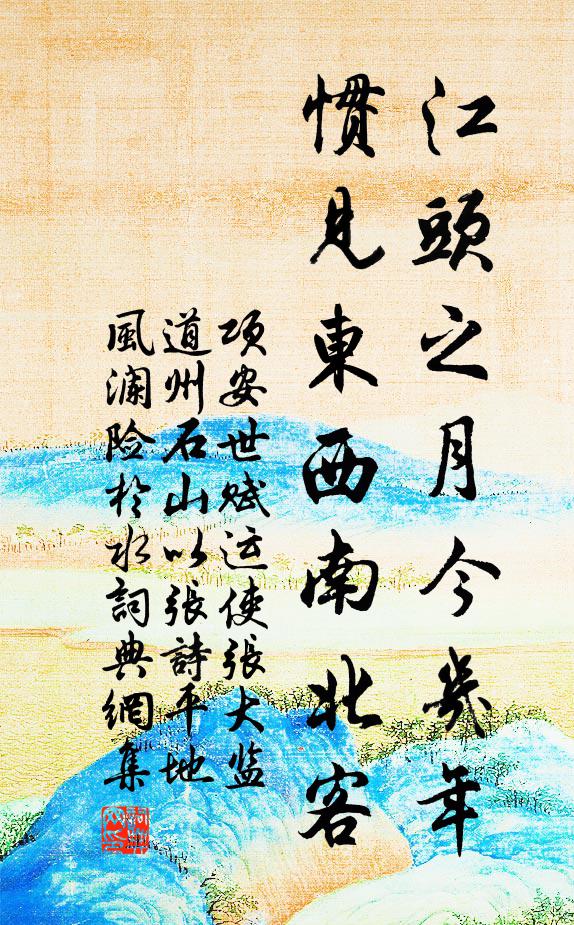 江頭之月今幾年
慣見東西南北客
项安世赋运使張大监
道州石山以張詩平地
風澜险於水詞典網集